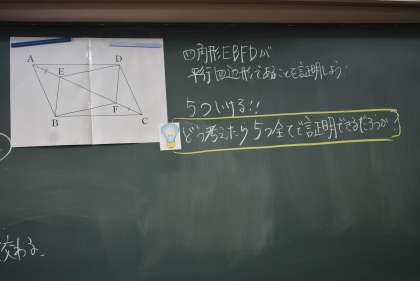 A
D
E
F
B
C
四角形EBFDが
平行四辺形であることを証明しよう
5ついける!!
どう考えたら5つ全てで証明できるだろうか?
交わる。